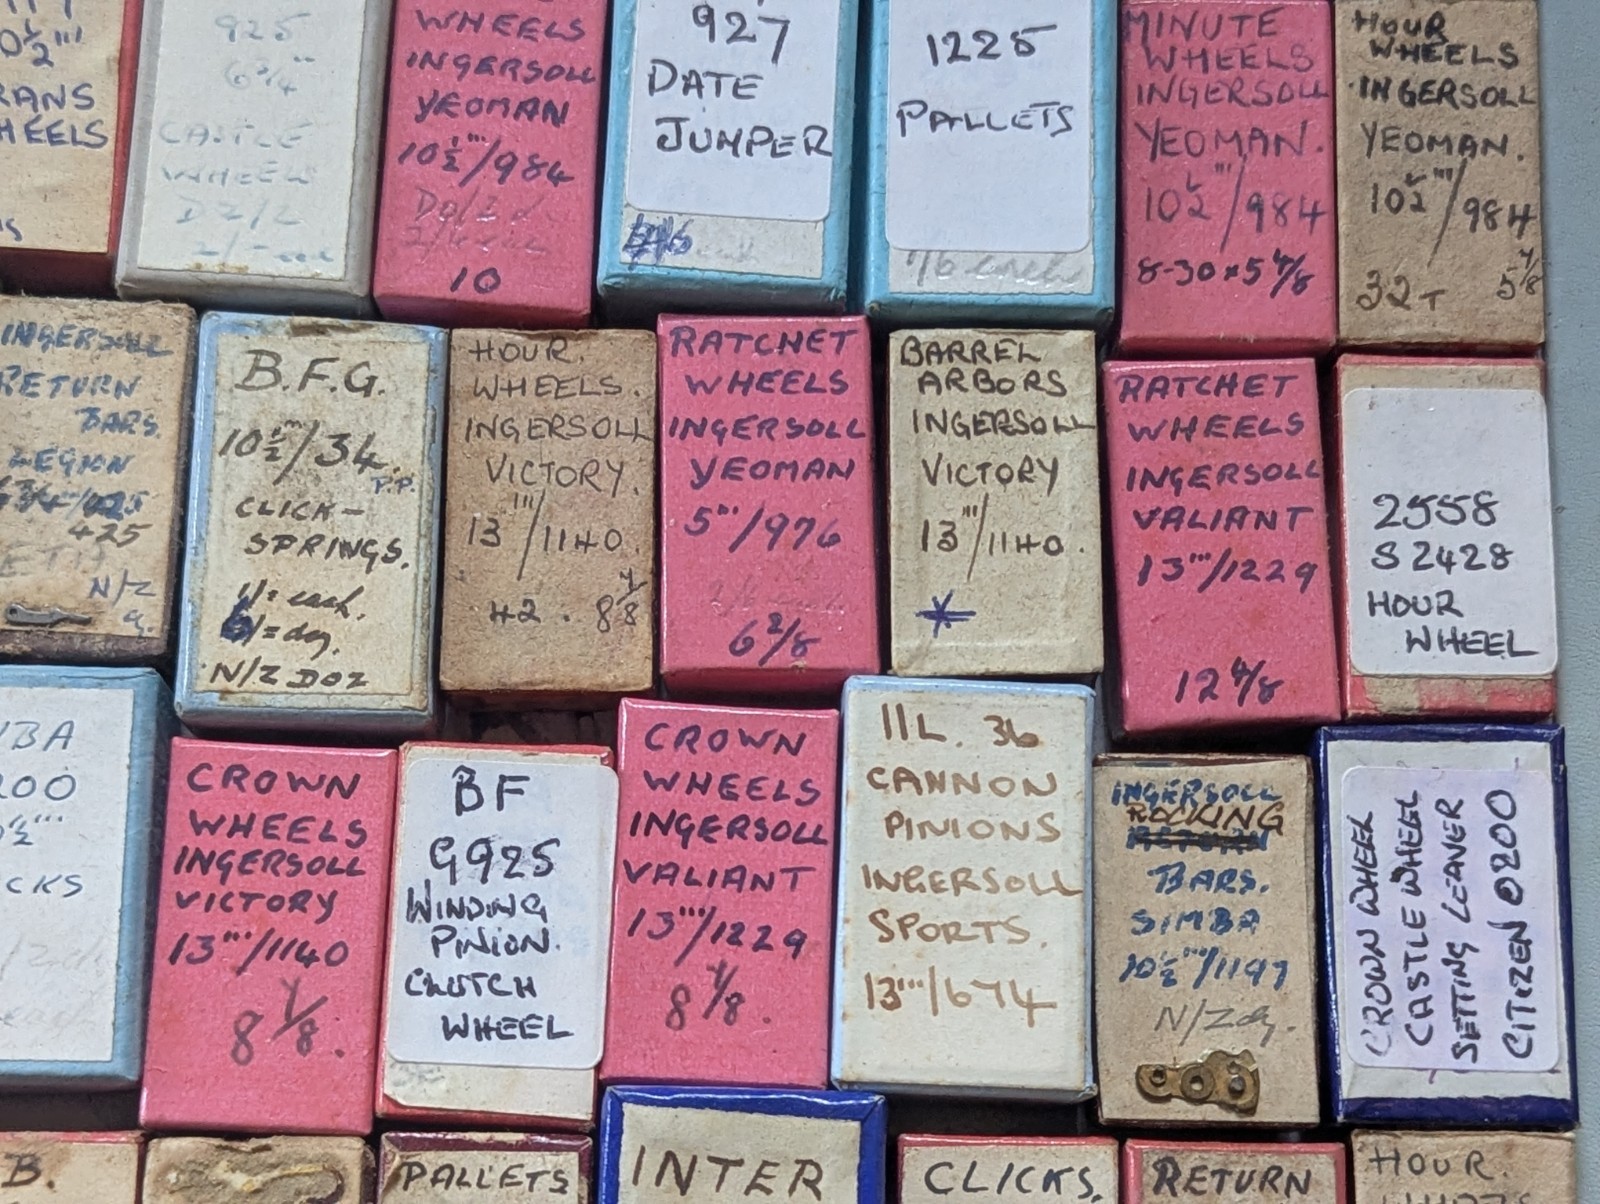 10½'''
WHEELS
925
6¾'''
CASTLE
WHEELS
WHEELS
INGERSOLL
YEOMAN
10½'''/984
10
927
DATE
JUMPER
1225
PALLETS
1/6 each
MINUTE
WHEELS
INGERSOLL
YEOMAN.
10½'''/984
8-30 x 5 4/8
HOUR
WHEELS
INGERSOLL
YEOMAN.
10½'''/984
32 T 5 4/8
INGERSOLL
RETURN
BARS.
LEGION
425
N/Z
B.F.G.
10½'''/34.
P.P.
CLICK-
SPRINGS.
1/= each.
N/Z DOZ
HOUR.
WHEELS.
INGERSOLL
VICTORY.
13'''/1140.
42. 8 1/8
RATCHET
WHEELS
INGERSOLL
YEOMAN
5'''/976
6 2/8
BARREL
ARBORS
INGERSOLL
VICTORY
13'''/1140.
RATCHET
WHEELS
INGERSOLL
VALIANT
13'''/1229
12 4/8
2558
S2428
HOUR
WHEEL
CROWN
WHEELS
INGERSOLL
VICTORY
13'''/1140
8 1/8.
BF
G925
WINDING
PINION.
CLUTCH
WHEEL
CROWN
WHEELS
INGERSOLL
VALIANT
13'''/1229
8 1/8.
11L. 36
CANNON
PINIONS
INGERSOLL
SPORTS.
13'''/674
INGERSOLL
ROCKING
BARS.
SIMBA
10½'''/1197
N/Z
CROWN WHEEL
CASTLE WHEEL
SETTING LEAVER
CITIZEN 0200
B.
PALLETS
INTER
CLICKS.
RETURN
HOUR.